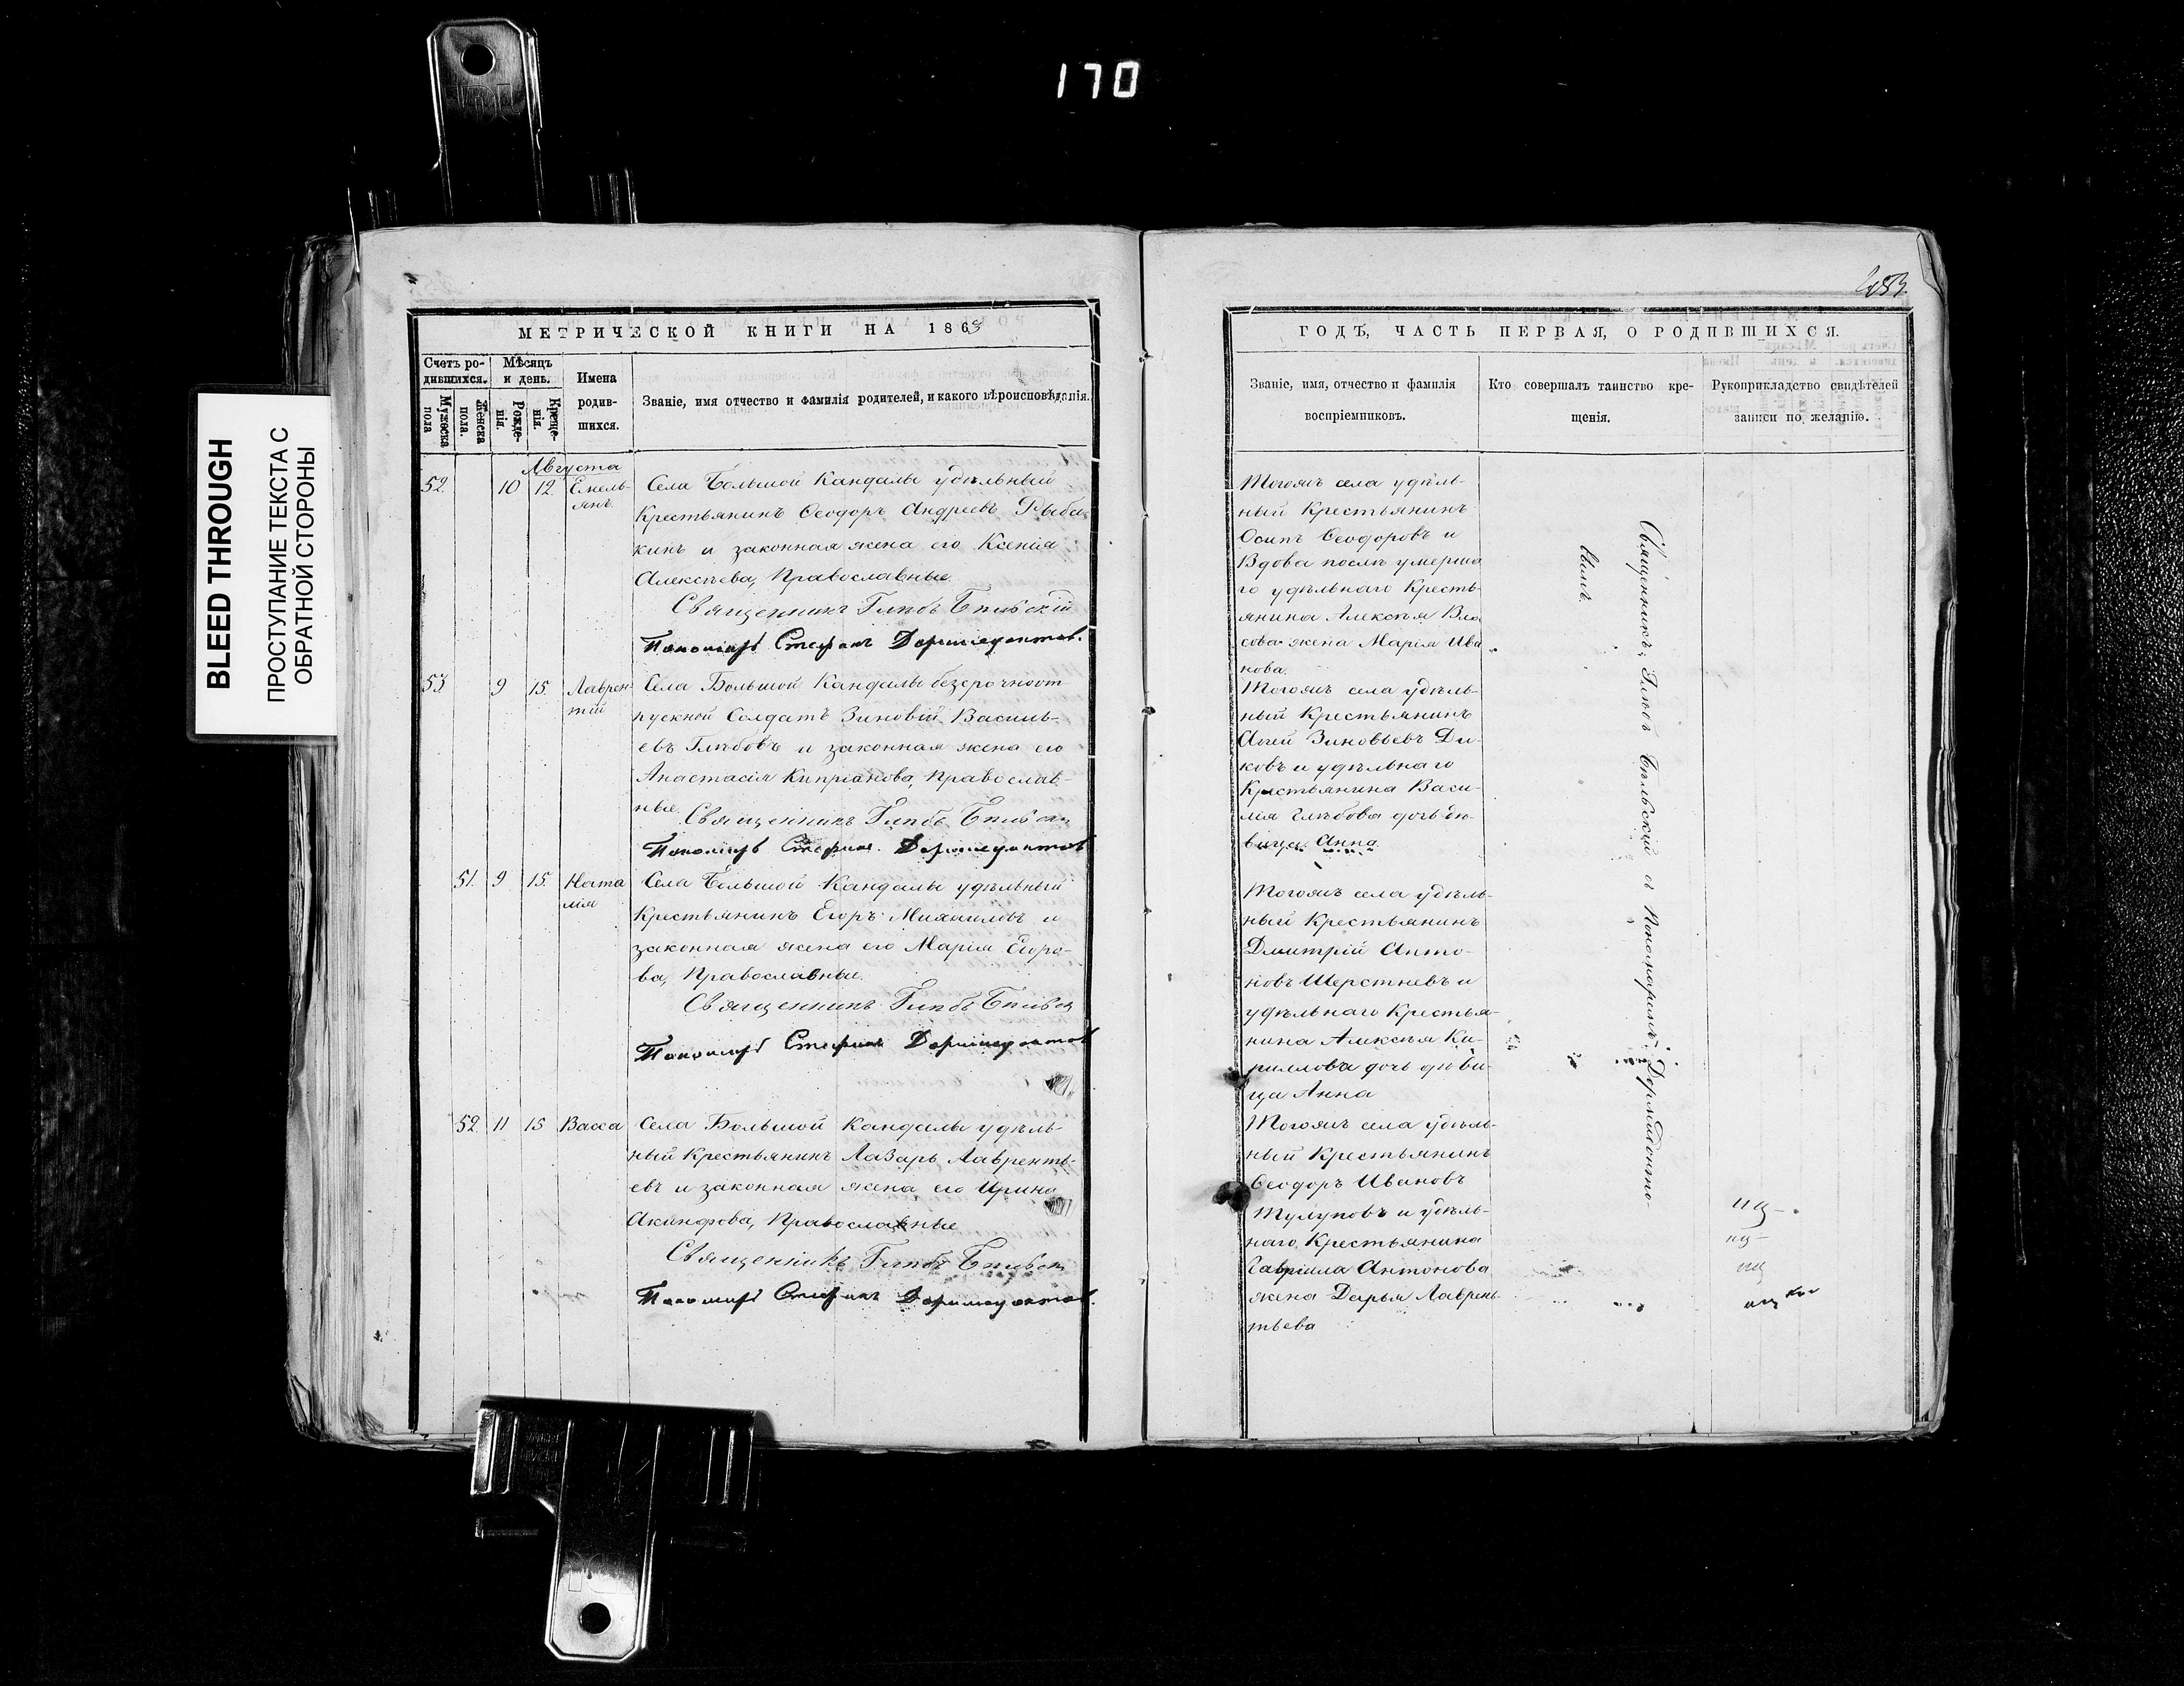 170
BLEED THROUGH
ПРОСТУПАНИЕ ТЕКСТА С
ОБРАТНОЙ СТОРОНЫ
МЕТРИЧЕСКОЙ КНИГИ НА 1863
Счетъ ро-
дившихся.
Мѣсяцъ
и день.
Мужеска
пола
Женска
пола.
Рожде-
нія.
Креще-
нія.
Имена
родив-
шихся.
Званіе, имя отчество и фамилія родителей, и какого вѣроисповѣданія.
Августа
52. 10 12 Емель-
янъ.
Села Большой Кандалы удѣльный
Крестьянинъ Ѳеодоръ Андреевъ Рыба-
кинъ и законная жена его Ксенія
Алексѣева, Православные
Священникъ Глѣбъ Бѣльскій
Пономарь Стефанъ Дормедонтов.
53 9 15. Лаврен
тій
Села Большой Кандалы безсрочноот
пускной Солдатъ Зиновій Василь-
евъ Глѣбовъ и законная жена его
Анастасія Кипріанова, Православ-
ные
Священникъ Глѣбъ Бѣльск
Пономарь Стефан. Дормедонтов
51. 9 15. Ната
лія
Села Большой Кандалы удѣльный
Крестьянинъ Егоръ Михаиловъ и
законная жена его Марія Егоро-
ва, Православные.
Священникъ Глѣбъ Бѣльск
Пономарь Стефан Дормедонтов
52. 11 15 Васса
Села Большой Кандалы удѣль-
ный Крестьянинъ Лазарь Лавренть-
евъ и законная жена его Ирина
Акинфова, Православные
Священникъ Глѣбъ Бѣльск
Пономарь Стефанъ Дормедонтов.
ГОДЪ, ЧАСТЬ ПЕРВАЯ, О РОДИВШИХСЯ.
Званіе, имя, отчество и фамилія
воспріемниковъ.
Кто совершалъ таинство кре-
щенія.
Рукоприкладство свидѣтелей
записи по желанію.
Тогожъ села удѣль-
ный Крестьянинъ
Осипъ Ѳеодоровъ и
Вдова послѣ умерша
го удѣльнаго Кресть-
янина Алексѣя Вла
сова жена Марія Ива
нова.
Тогожъ села удѣль-
ный Крестьянинъ
Зиновьевъ Ди-
ковъ и удѣльнаго
Крестьянина Васи-
лія Глѣбова дочь дѣ-
вица Анна
Тогожъ села удѣль-
ный Крестьянинъ
Дмитрій Анто-
новъ Шерстневъ и
удѣльнаго Крестья-
нина Алексѣя Ки-
риллова дочь дѣви-
ца Анна
Тогожъ села удѣль-
ный Крестьянинъ
Ѳеодоръ Ивановъ
Тулуповъ и удѣль-
наго Крестьянина
Гавріила Антонова
жена Дарья Лаврень
тьева
Священникъ Глѣбъ Бѣльскій и Пономаримъ Дормедонто-
вымъ.